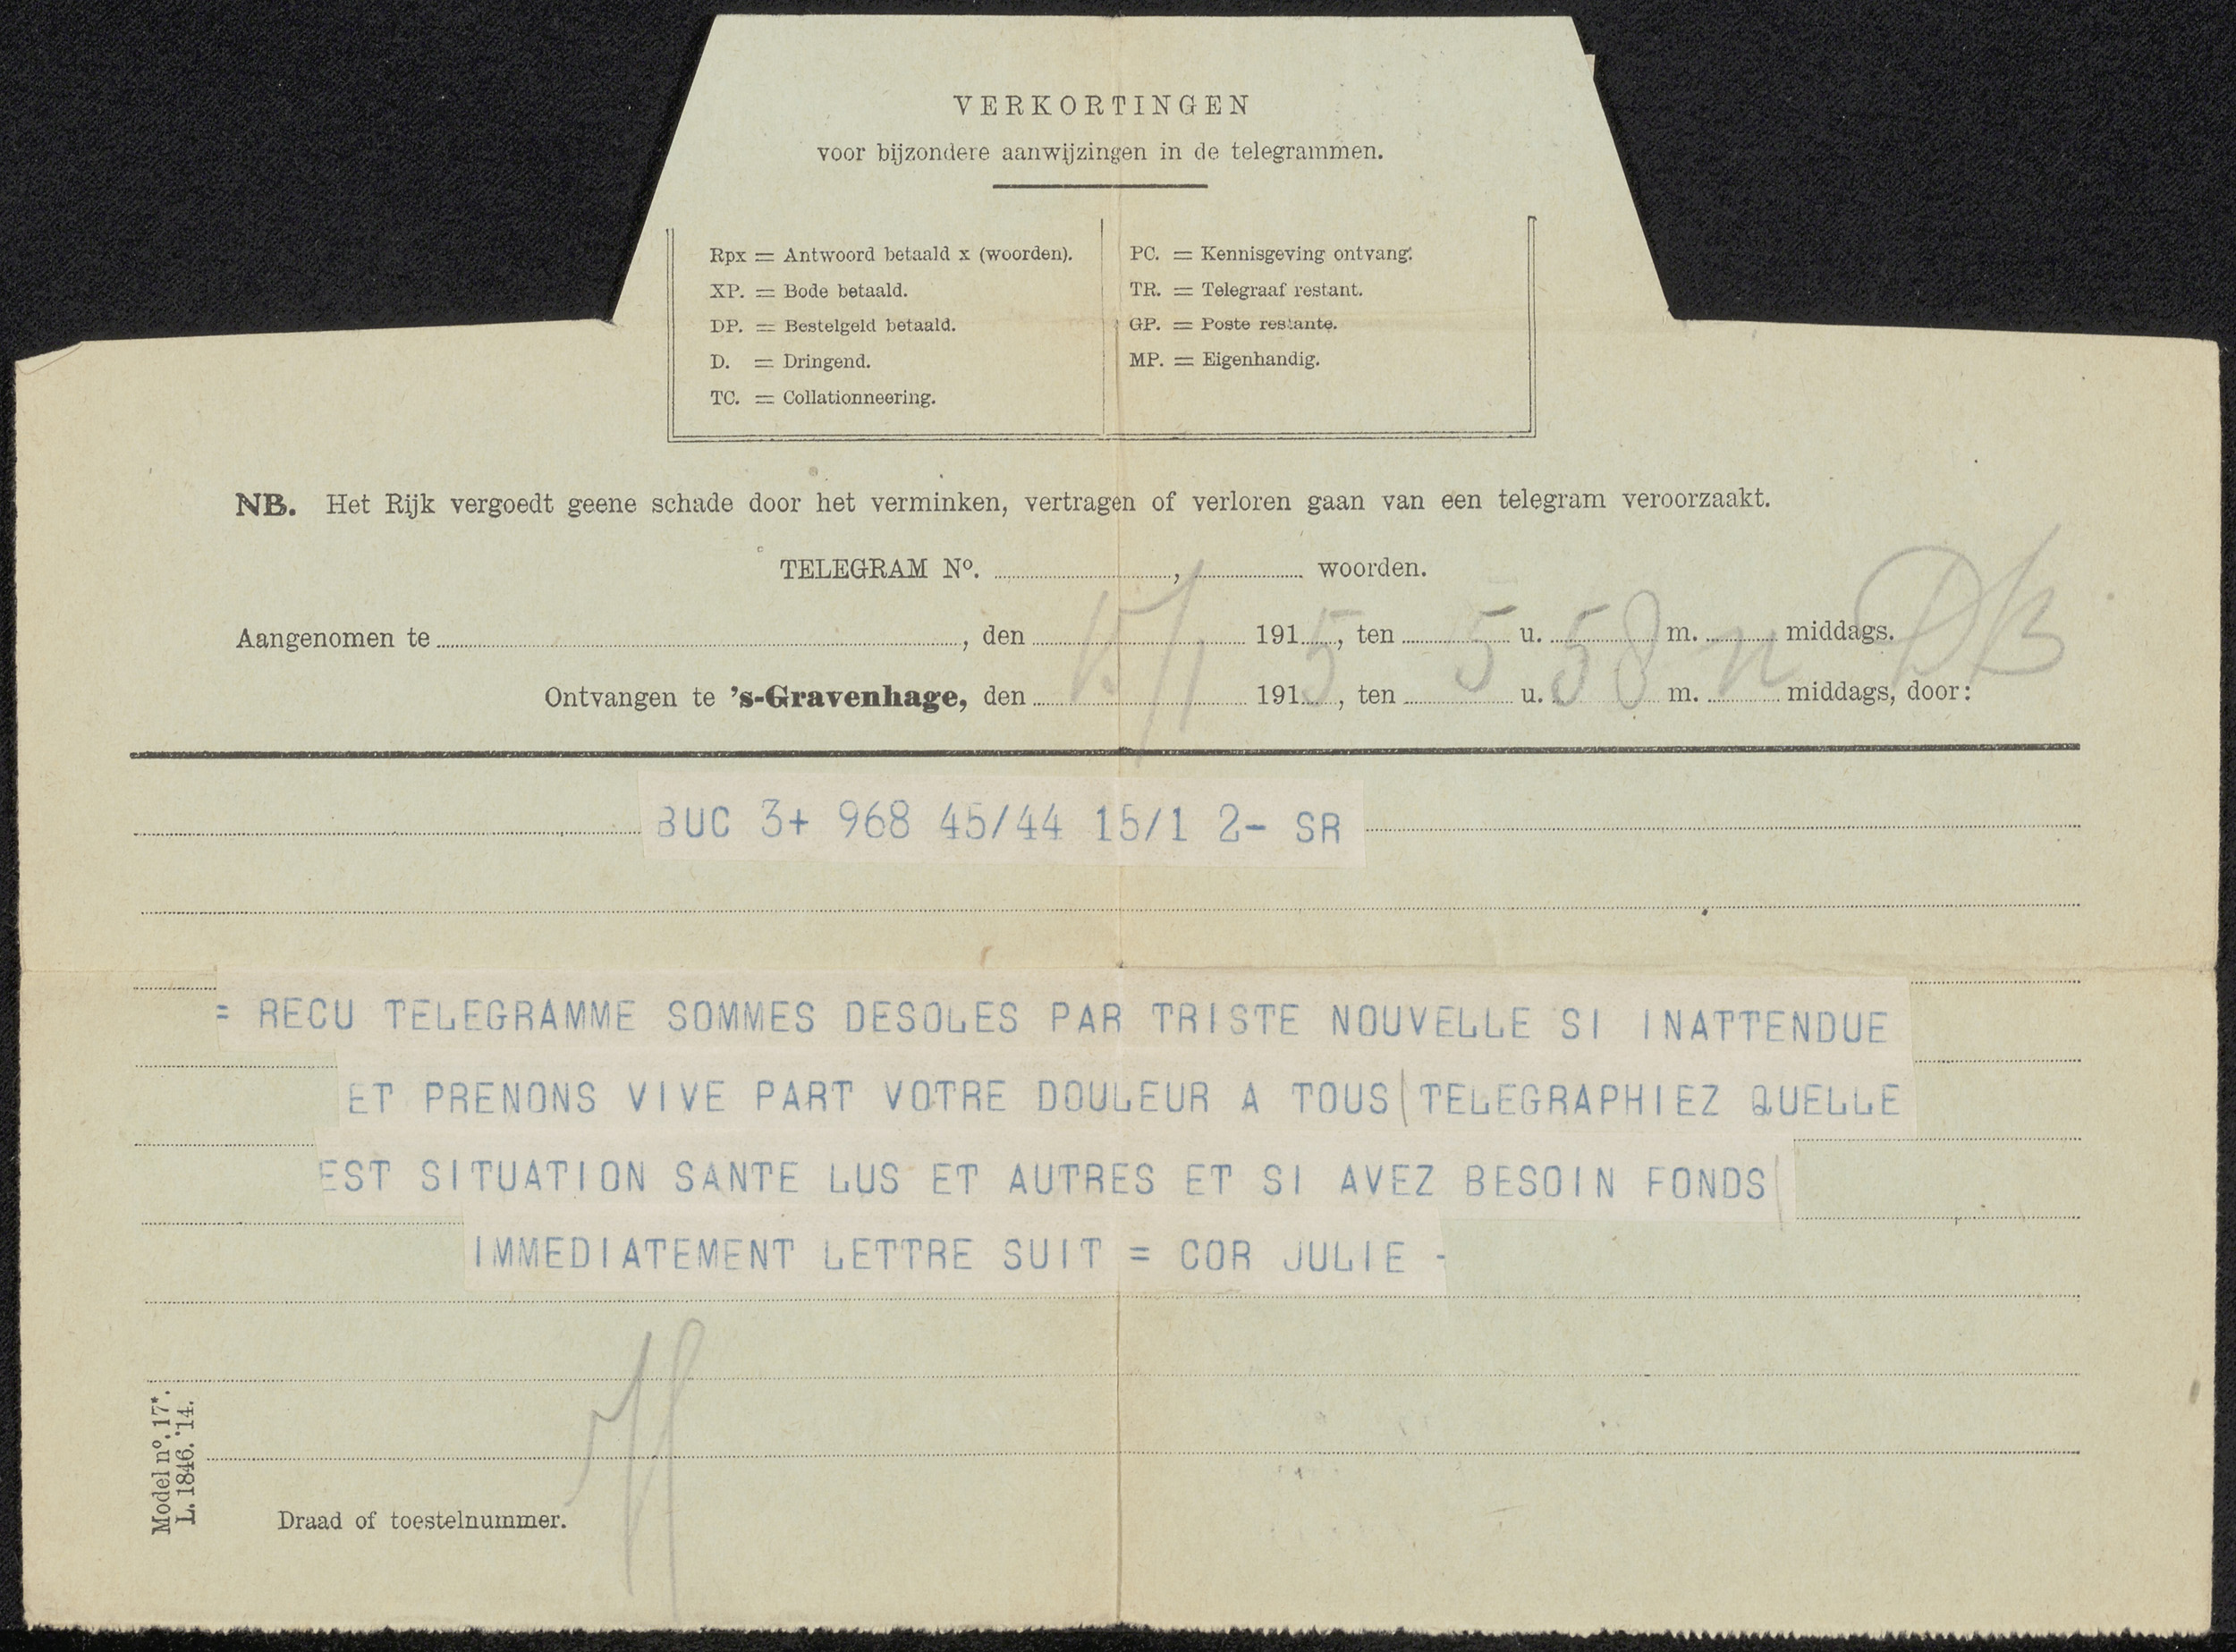 VERKORTINGEN
voor bijzondere aanwijzingen in de telegrammen.
Rpx = Antwoord betaald x (woorden).
XP. = Bode betaald.
DP. = Bestelgeld betaald.
D. = Dringend.
TC. = Collationneering.
PC. = Kennisgeving ontvang.
TR. = Telegraaf restant.
GP. = Poste restante.
MP. = Eigenhandig.
NB. Het Rijk vergoedt geene schade door het verminken, vertragen of verloren gaan van een telegram veroorzaakt.
TELEGRAM No. , woorden.
Aangenomen te , den 191 , ten u. m. middags.
Ontvangen te 's-Gravenhage, den 15/1 1915, ten 5 u. 58 m. n middags, door: DB
BUC 3+ 968 45/44 15/1 2- SR
= RECU TELEGRAMME SOMMES DESOLES PAR TRISTE NOUVELLE SI INATTENDUE
ET PRENONS VIVE PART VOTRE DOULEUR A TOUS | TELEGRAPHIEZ QUELLE
EST SITUATION SANTE LUS ET AUTRES ET SI AVEZ BESOIN FONDS |
IMMEDIATEMENT LETTRE SUIT = COR JULIE -
Draad of toestelnummer.
Model no. 17*.
L. 1846. '14.